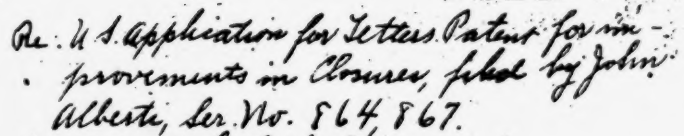 Re: U S. Application for Letters Patent for im-
provements in Closures, filed by John
Alberti, Ser. No. 864,867.